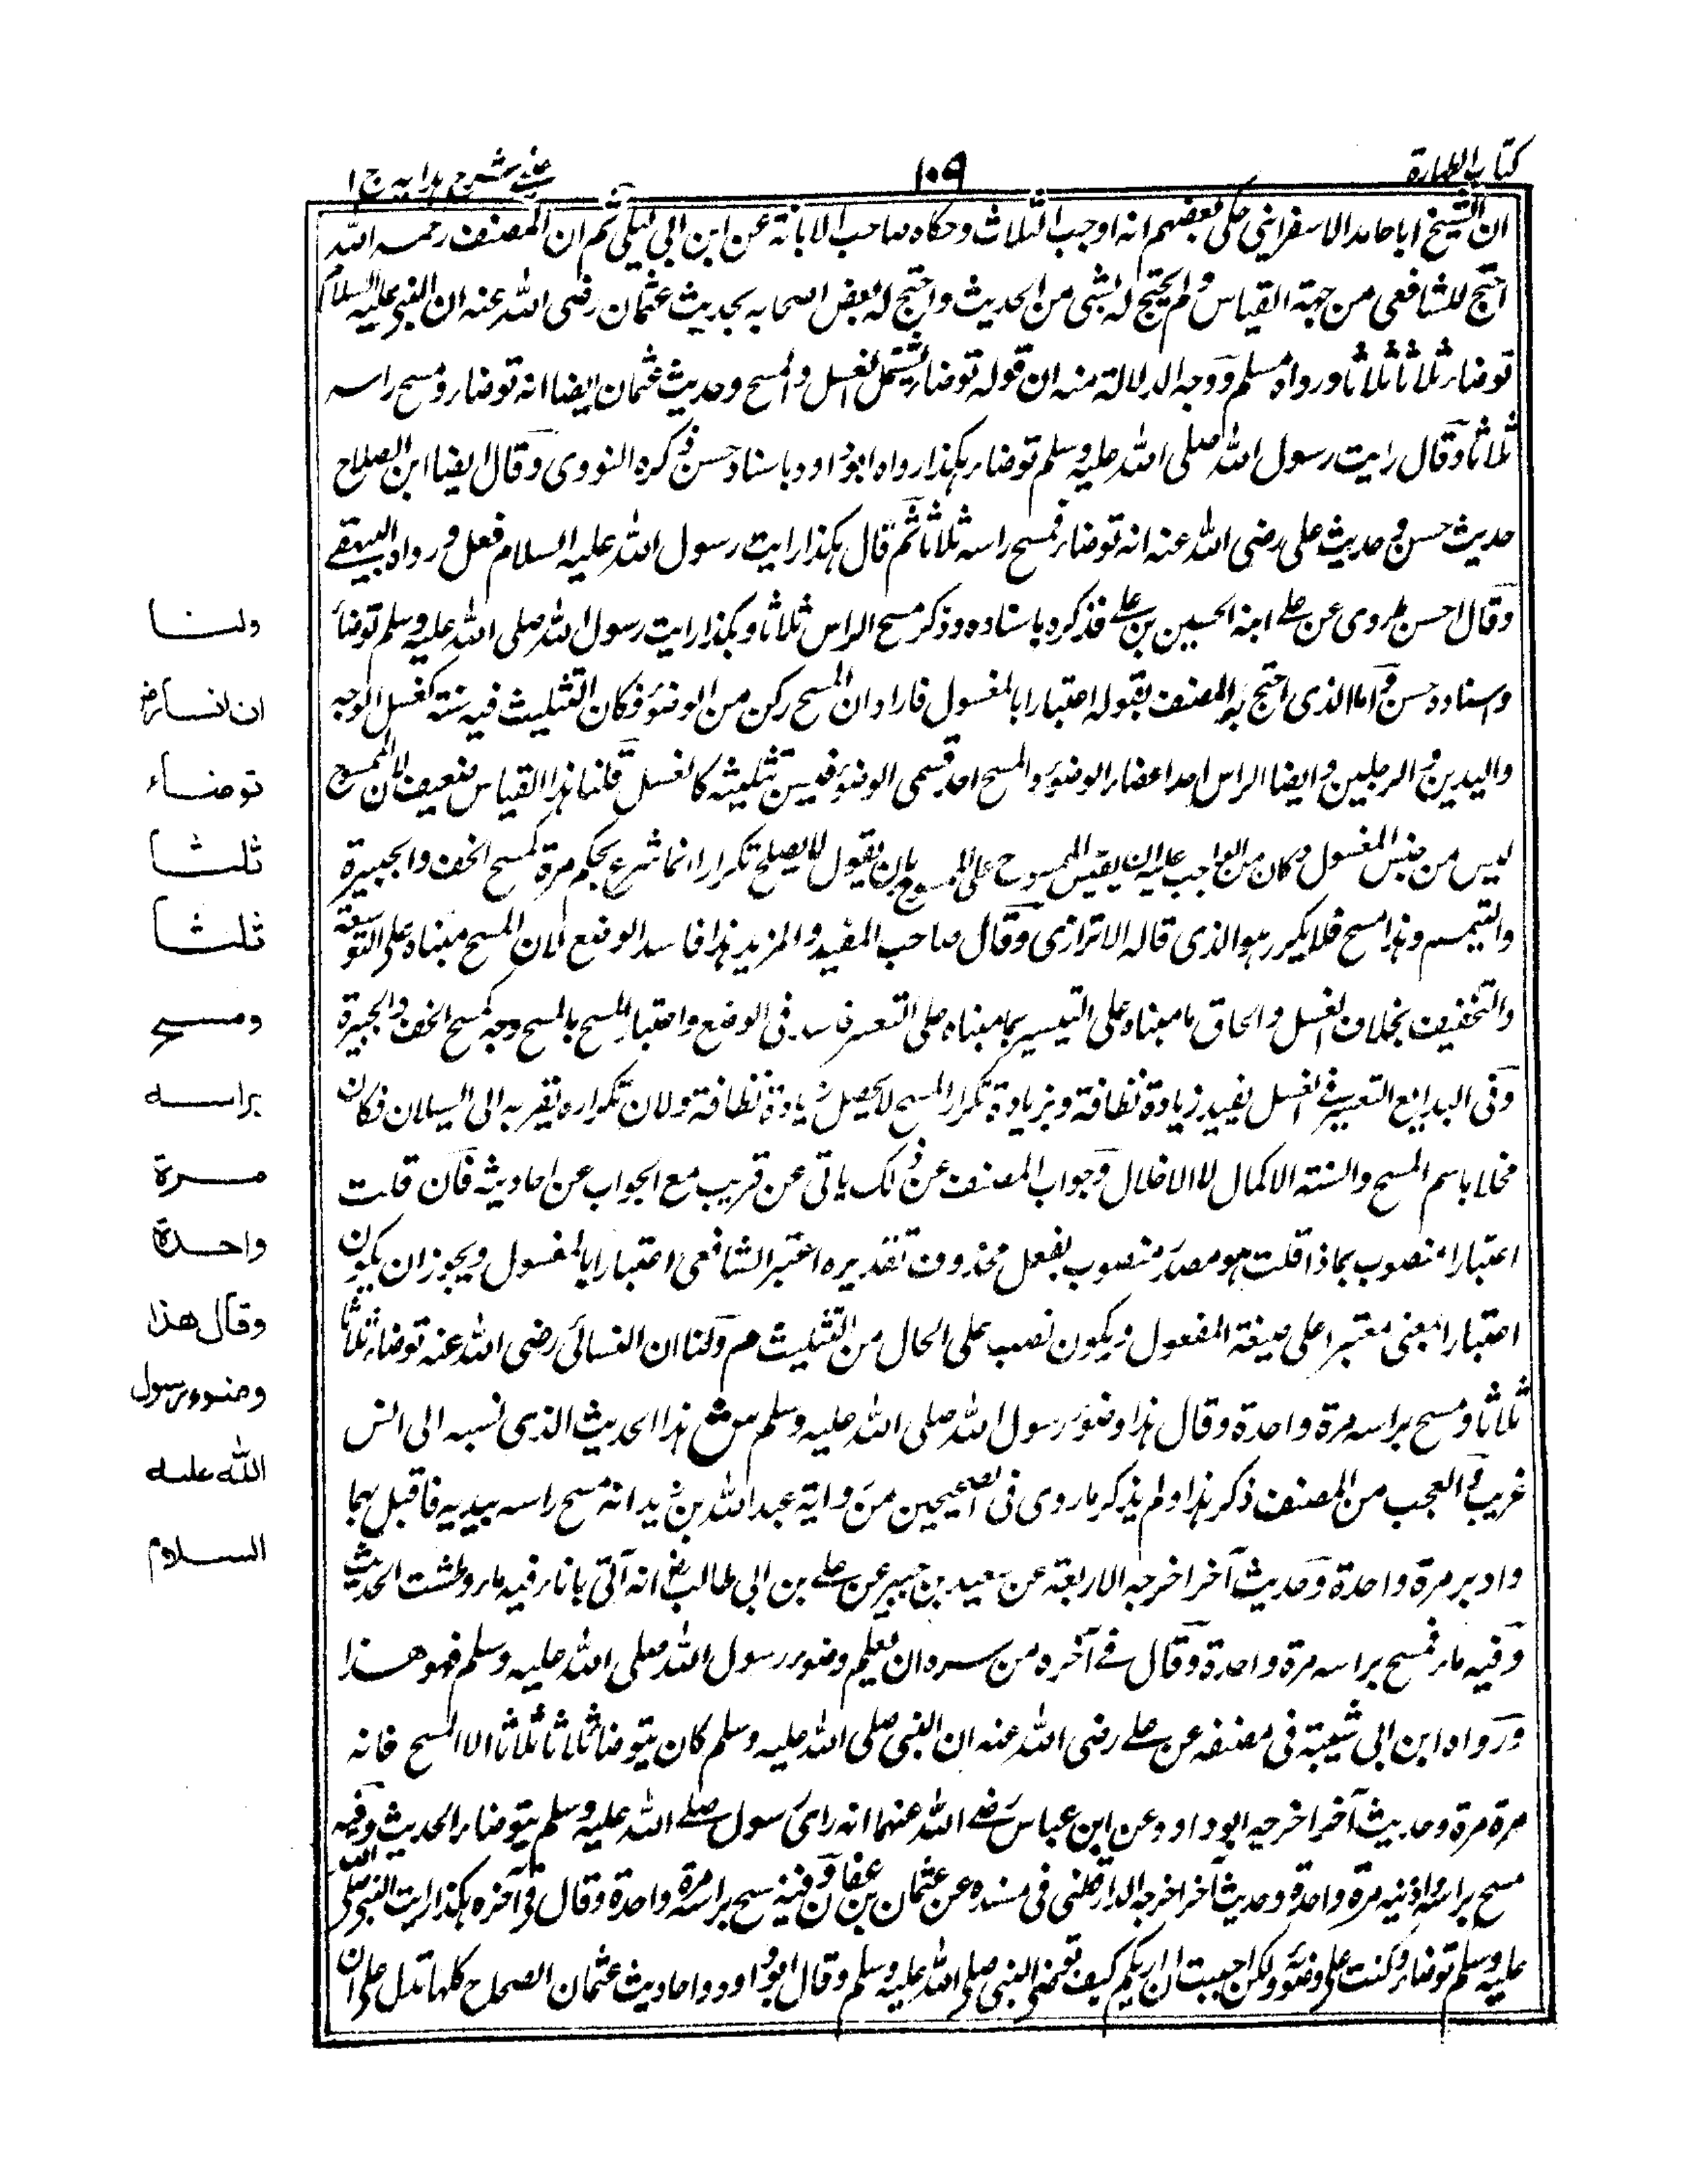 كتاب الطهارة
١٠٩
عينى شرح هدايه ج ١
ان الشيخ ابا حامد الاسفرائنى حكى بعضهم انه اوجب الثلاث وحكاه صاحب الابانة عن ابن ابى ليلى ثم ان المصنف رحمه الله
احتج للشافعى من جهة القياس ولم يحتج له بشى من الحديث واحتج له بعض اصحابه بحديث عثمان رضى الله عنه ان النبى عليه السلام
توضاء ثلاثا ثلاثا ورواه مسلم ووجه الدلالة منه ان قوله توضاء يشتمل الغسل والمسح وحديث عثمان ايضا انه توضاء ومسح راسه
ثلاثا وقال رايت رسول الله صلى الله عليه وسلم توضاء هكذا رواه ابوداود باسناد حسن ذكره النووى وقال ايضا ابن الصلاح
حديث حسن وحديث على رضى الله عنه انه توضاء فمسح راسه ثلاثا ثم قال هكذا رايت رسول الله عليه السلام فعل ورواه البيهقے
وقال احسن ماروى عن علے ابنه الحسين بن علے فذكره باسناده وذكر مسح الراس ثلاثا وهكذا رايت رسول الله صلى الله عليه وسلم توضأ
واسناده حسن واما الذى احتج به المصنف بقوله اعتبارا بالمغسول فاراد ان المسح ركن من الوضؤ فكان التثليث فيه سنة كغسل الوجه
واليدين والرجلين وايضا الراس احد اعضاء الوضوء والمسح احد قسمى الوضؤ فيسن تثليثه كالغسل قلنا هذا القياس ضعيف لان الممسوح
ليس من جنس المغسول وكان من الواجب عليه ان يقيس الممسوح على الممسوح بان يقول لا يصلح تكرارا انما شرع بحكم مرة كمسح الخف والجبيرة
والتيمم وهذا مسح فلا يكرر هو الذى قاله الاترازى وقال صاحب المفيد والمزيد هذا فاسد الوضع لان المسح مبناه على التوسعة
والتخفيف بخلاف الغسل والحاق ما مبناه على التيسير بما مبناه على التعسر فاسد فى الوضع واعتبار المسح بالمسح وجه كمسح الخف والجبيرة
وفى البدايع التعبير فے الغسل يفيد زيادة نظافة وبزيادة تكرار المسح لا يحصل زيادة نظافة ولان تكراره يقربه الى السيلان فكان
مخلا باسم المسح والسنة الاكمال لا الاخلال وجواب المصنف عن ذلك ياتى عن قريب مع الجواب عن احاديثه فان قلت
اعتبارا منصوب بماذا قلت هو مصدر منصوب بفعل محذوف تقديره اعتبر الشافعى اعتبارا بالمغسول ويجوز ان يكون
اعتبارا بمعنى معتبرا على صيغة المفعول ويكون نصب على الحال من التثليث م ولنا ان النسائى رضى الله عنه توضاء ثلاثا
ثلاثا ومسح براسه مرة واحدة وقال هذا وضوء رسول الله صلى الله عليه وسلم ش هذا الحديث الذى نسبه الى انس
غريب والعجب من المصنف ذكر هذا ولم يذكر ماروى فى الصحيحين من رواية عبد الله بن زيد انه مسح راسه بيديه فاقبل بهما
وادبر مرة واحدة وحديث آخر اخرجه الاربعة عن سعيد بن جبير عن علے بن ابى طالب رض انه آتى باناء فيه ماء وطشت الحديث
وفيه ماء فمسح براسه مرة واحدة وقال فے آخره من سره ان يعلم وضوء رسول الله صلى الله عليه وسلم فهو هذا
ورواه ابن ابى شيبة فى مصنفه عن علے رضى الله عنه ان النبى صلى الله عليه وسلم كان يتوضا ثلاثا ثلاثا الا المسح فانه
مرة مرة وحديث آخر اخرجه ابوداود وعن ابن عباس رضے الله عنهما انه راى رسول صلے الله عليه وسلم يتوضاء الحديث وفيه
مسح براسه واذنيه مرة واحدة وحديث آخر اخرجه الدارقطنى فى مسنده عن عثمان بن عفان وفيه مسح براسه مرة واحدة وقال فى آخره هكذا رايت النبى صلى الله
عليه وسلم توضاء وكنت على وضوء ولكن احببت ان اريكم كيف توضى النبى صلى الله عليه وسلم وقال ابوداود واحاديث عثمان الصحاح كلها تدل على ان
ولنا
ان انسا رض
توضاء
ثلثا
ثلثا
ومسح
براسه
مرة
واحدة
وقال هذا
وضوء رسول
الله عليه
السلام